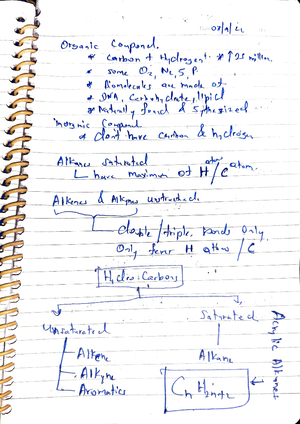 Organic Compound.
* Carbon + Hydrogen * ↑ 25 million
* some O2, N2, S, P.
* Biomolecules are made of
* DNA, Carbohydrate, lipid
* Naturally found & synthesized
Inorganic Compound
* don't have carbon & hydrogen
Alkanes saturated
have maximum of H atom/C atom.
Alkenes & Alkynes unsaturated
double/triple bonds only.
Only fewer H atoms/C
Hydro-Carbons
Unsaturated
Saturated
- Alkene
- Alkyne
- Aromatics
Alkane
CnH2n+2
Acyclic Alkanes